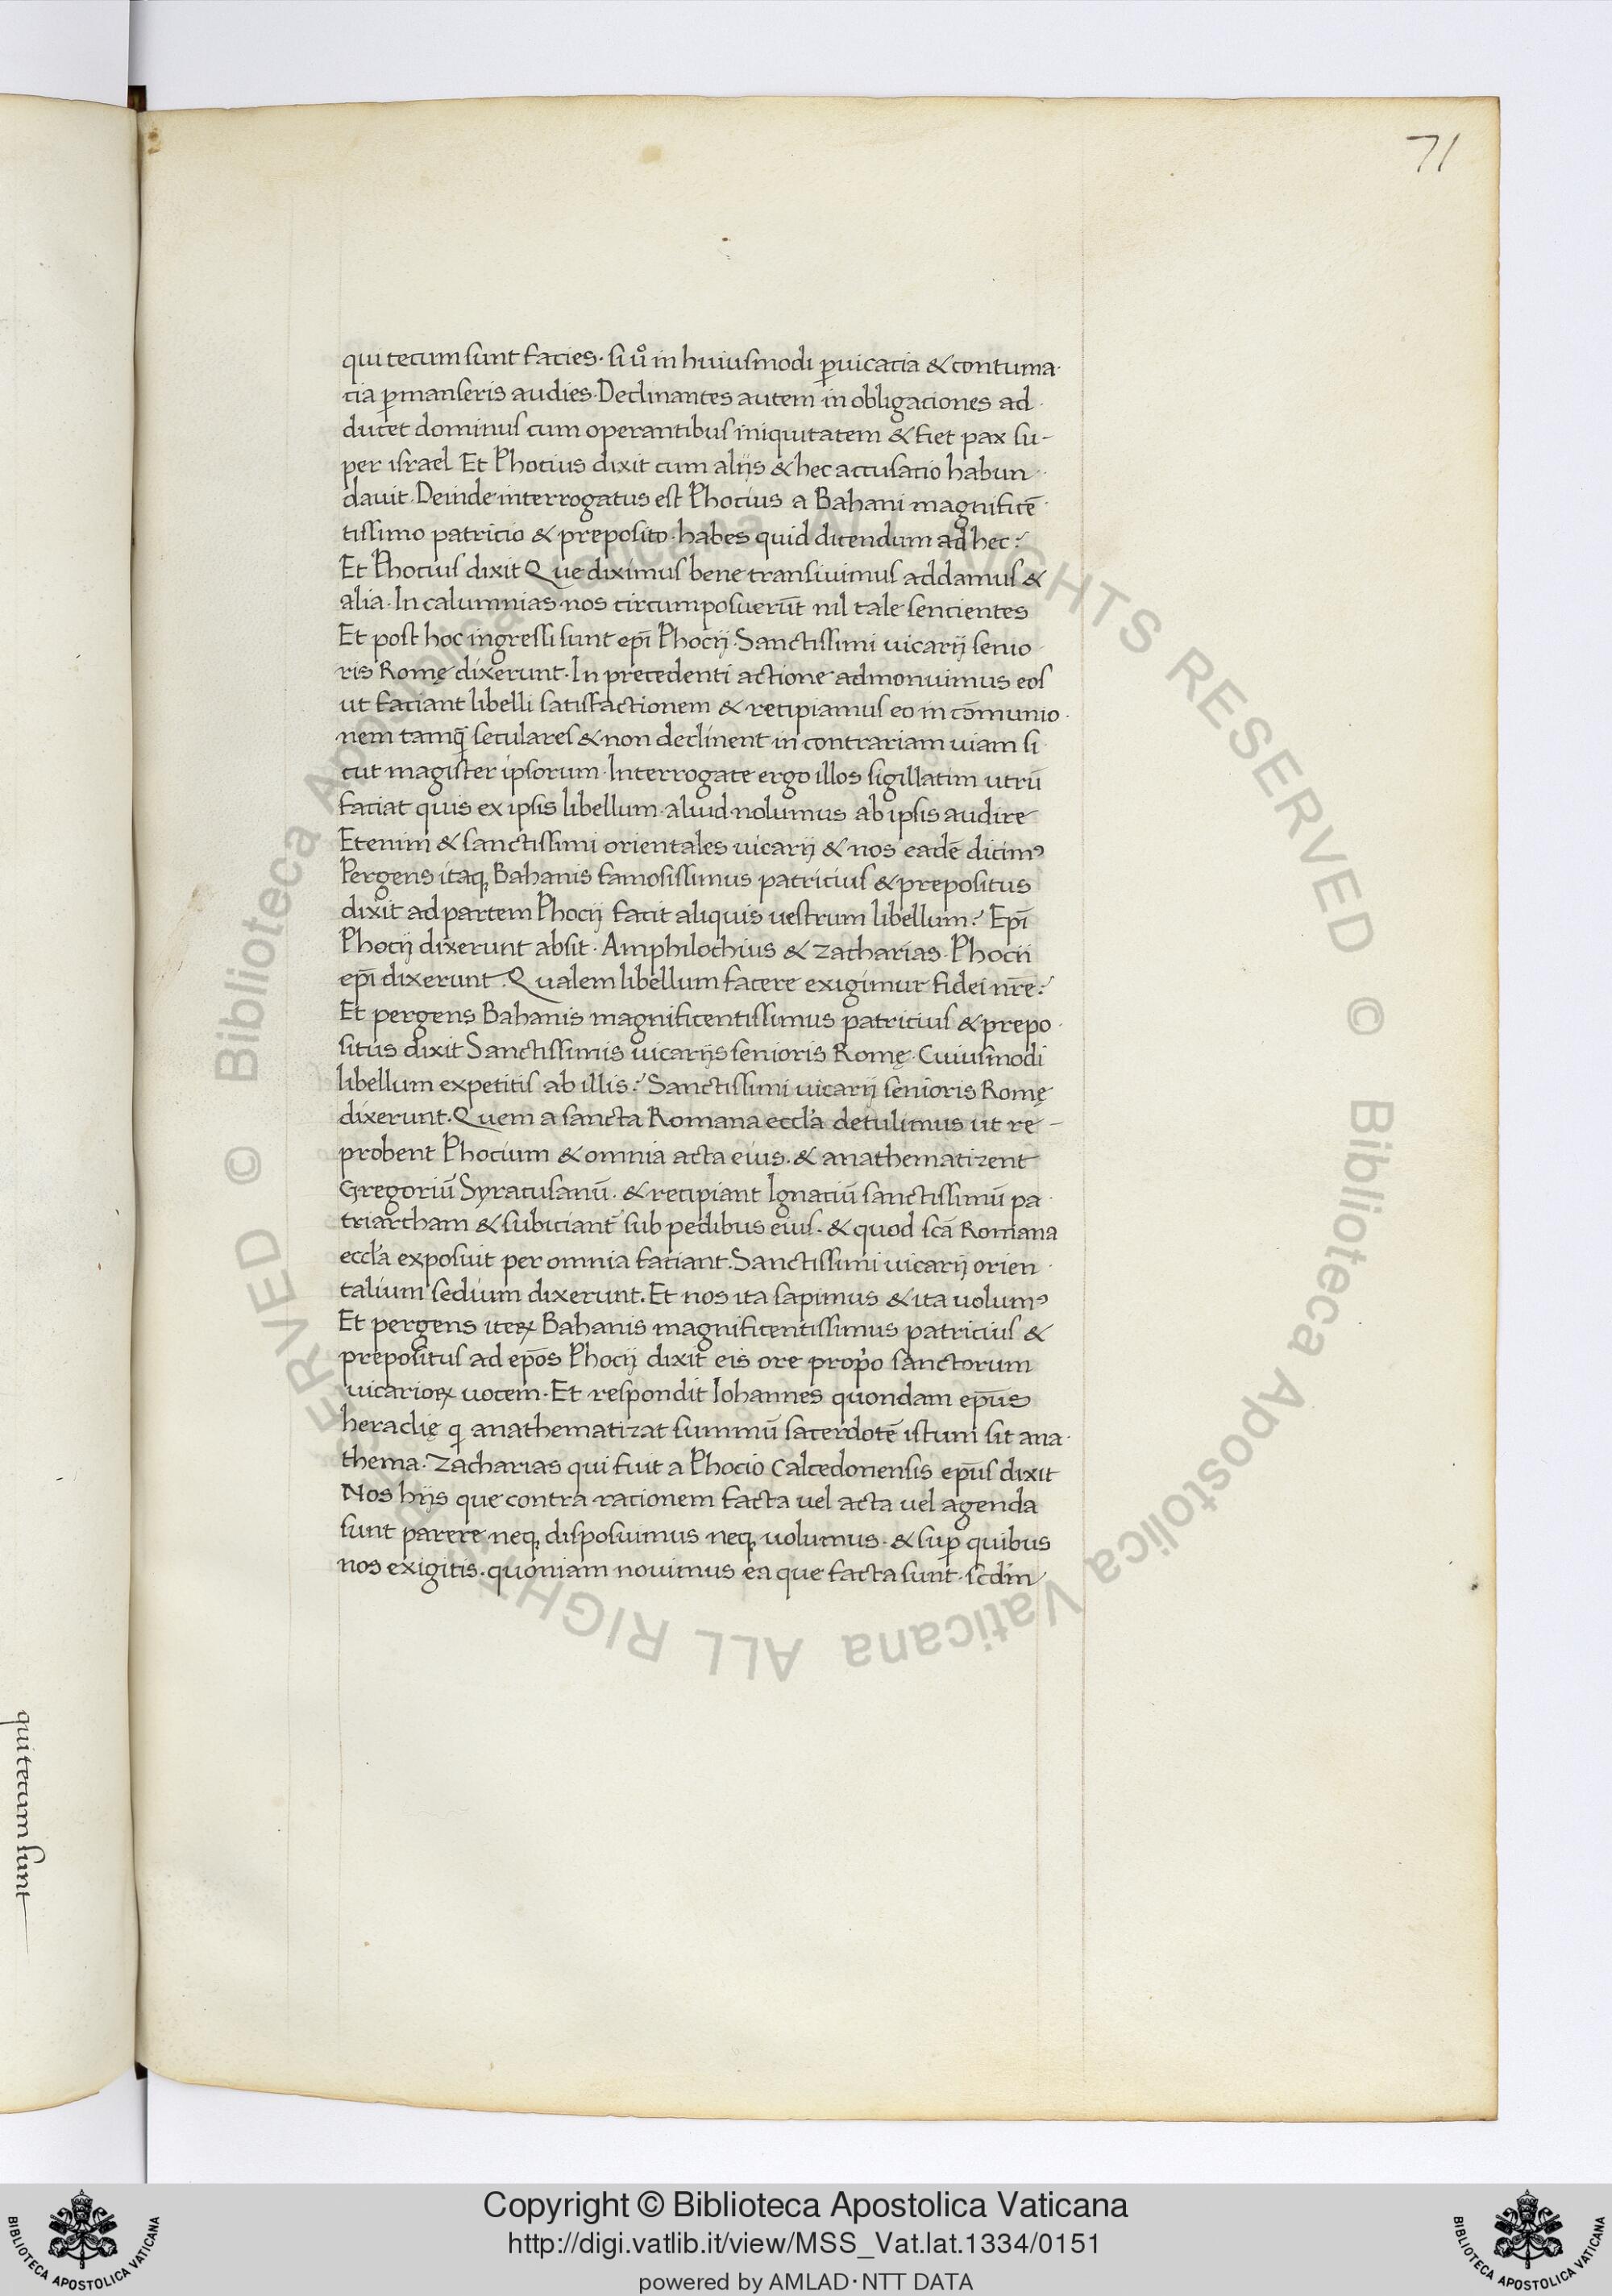 71
qui tecum sunt facies · si uͦ in huiusmodi ꝑuicacia & contuma·
cia ꝑmanseris audies · Declinantes autem in obligaciones ad·
ducet dominus cum operantibus iniquitatem & fiet pax su-
per israel Et Phocius dixit cum alijs & hec accusacio habun·
dauit · Deinde interrogatus est Phocius a Bahani magnificē·
tissimo patricio & preposito · habes quid dicendum ad hec?
Et Phocius dixit Que diximus bene transiuimus addamus &
alia · In calumnias nos circumposuerūt nil tale sencientes
Et post hoc ingressi sunt ep̄i Phocij · Sanctissimi uicarij senio·
ris Romę dixerunt · In precedenti actione admonuimus eos
ut faciant libelli satisfactionem & recipiamus eo in cōmunio·
nem tamq̄ seculares & non declinent in contrariam uiam si
cut magister ipsorum · Interrogate ergo illos sigillatim utrū
faciat quis ex ipsis libellum · aliud nolumus ab ipsis audire
Etenim & sanctissimi orientales uicarij & nos eadē dicimꝰ
Pergens itaqꝫ Bahanis famosissimus patricius & prepositus
dixit ad partem Phocij facit aliquis uestrum libellum? Ep̄i
Phocij dixerunt absit · Amphilochius & zacharias · Phocii
ep̄i dixerunt · Qualem libellum facere exigimur fidei nr̄e?
Et pergens Bahanis magnificentissimus patricius & prepo·
situs dixit Sanctissimis uicarijs senioris Romę · Cuiusmodi
libellum expetitis ab illis? Sanctissimi uicarij senioris Romę
dixerunt · Quem a sancta Romana eccl̄a detulimus ut re-
probent Phocium & omnia acta eius · & anathematizent
Gregoriū Syracusanū · & recipiant Ignaciū sanctissimū pa·
triarcham & subiciant̄ sub pedibus eius · & quod sc̄a Romana
eccl̄a exposuit per omnia faciant · Sanctissimi uicarij orien·
talium sedium dixerunt · Et nos ita sapimus & ita uolumꝰ
Et pergens iteꝝ Bahanis magnificentissimus patricius &
prepositus ad ep̄os Phocij dixit eis ore prop̄o sanctorum
uicarioꝝ uocem · Et respondit Iohannes quondam ep̄us
heraclię q anathematizat summū sacerdotē istum sit ana·
thema · Zacharias qui fuit a Phocio Calcedonensis ep̄us dixit
Nos hijs que contra racionem facta uel acta uel agenda
sunt parere neqꝫ disposuimus neqꝫ uolumus · & suꝑ quibus
nos exigitis · quoniam nouimus ea que facta sunt · scdm̄
qui tecum sunt
© Biblioteca Apostolica Vaticana ALL RIGHTS RESERVED © Biblioteca Apostolica Vaticana ALL RIGHTS RESERVED
Copyright © Biblioteca Apostolica Vaticana
http://digi.vatlib.it/view/MSS_Vat.lat.1334/0151
powered by AMLAD · NTT DATA
BIBLIOTECA APOSTOLICA VATICANA
BIBLIOTECA APOSTOLICA VATICANA